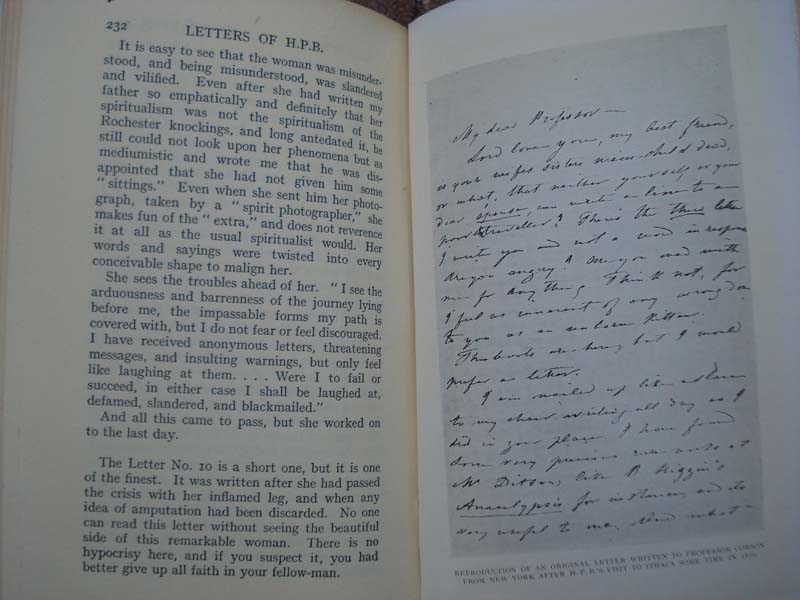 232 LETTERS OF H.P.B.
It is easy to see that the woman was misunder-
stood, and being misunderstood, was slandered
and vilified. Even after she had written my
father so emphatically and definitely that her
spiritualism was not the spiritualism of the
Rochester knockings, and long antedated it, he
still could not look upon her phenomena but as
mediumistic and wrote me that he was dis-
appointed that she had not given him some
“ sittings.” Even when she sent him her photo-
graph, taken by a “ spirit photographer,” she
makes fun of the “ extra,” and does not reverence
it at all as the usual spiritualist would. Her
words and sayings were twisted into every
conceivable shape to malign her.
She sees the troubles ahead of her. “ I see the
arduousness and barrenness of the journey lying
before me, the impassable forms my path is
covered with, but I do not fear or feel discouraged.
I have received anonymous letters, threatening
messages, and insulting warnings, but only feel
like laughing at them. . . . Were I to fail or
succeed, in either case I shall be laughed at,
defamed, slandered, and blackmailed.”
And all this came to pass, but she worked on
to the last day.
The Letter No. 10 is a short one, but it is one
of the finest. It was written after she had passed
the crisis with her inflamed leg, and when any
idea of amputation had been discarded. No one
can read this letter without seeing the beautiful
side of this remarkable woman. There is no
hypocrisy here, and if you suspect it, you had
better give up all faith in your fellow-man.
My dear Professor —
Lord love you, my best friend,
or what, that neither yourself or your
dear spouse, can write a line to a
poor traveller? This is the third letter
I write you and not a word in response
Are you angry? Are you mad with
me for any thing I think not, for
I feel as innocent of any wrong done
to you as an unborn kitten.
The books are here, but I would
prefer a letter.
I am nailed up like a slave
to my chair writing all day as I
did in your place. I have found
some very precious at
Mr Ditson, like B Higgin's
Anacalypsis for instance, and its
very useful to me. And what
REPRODUCTION OF AN ORIGINAL LETTER WRITTEN TO PROFESSOR CORSON
FROM NEW YORK AFTER H.P.B.'S VISIT TO ITHACA SOME TIME IN